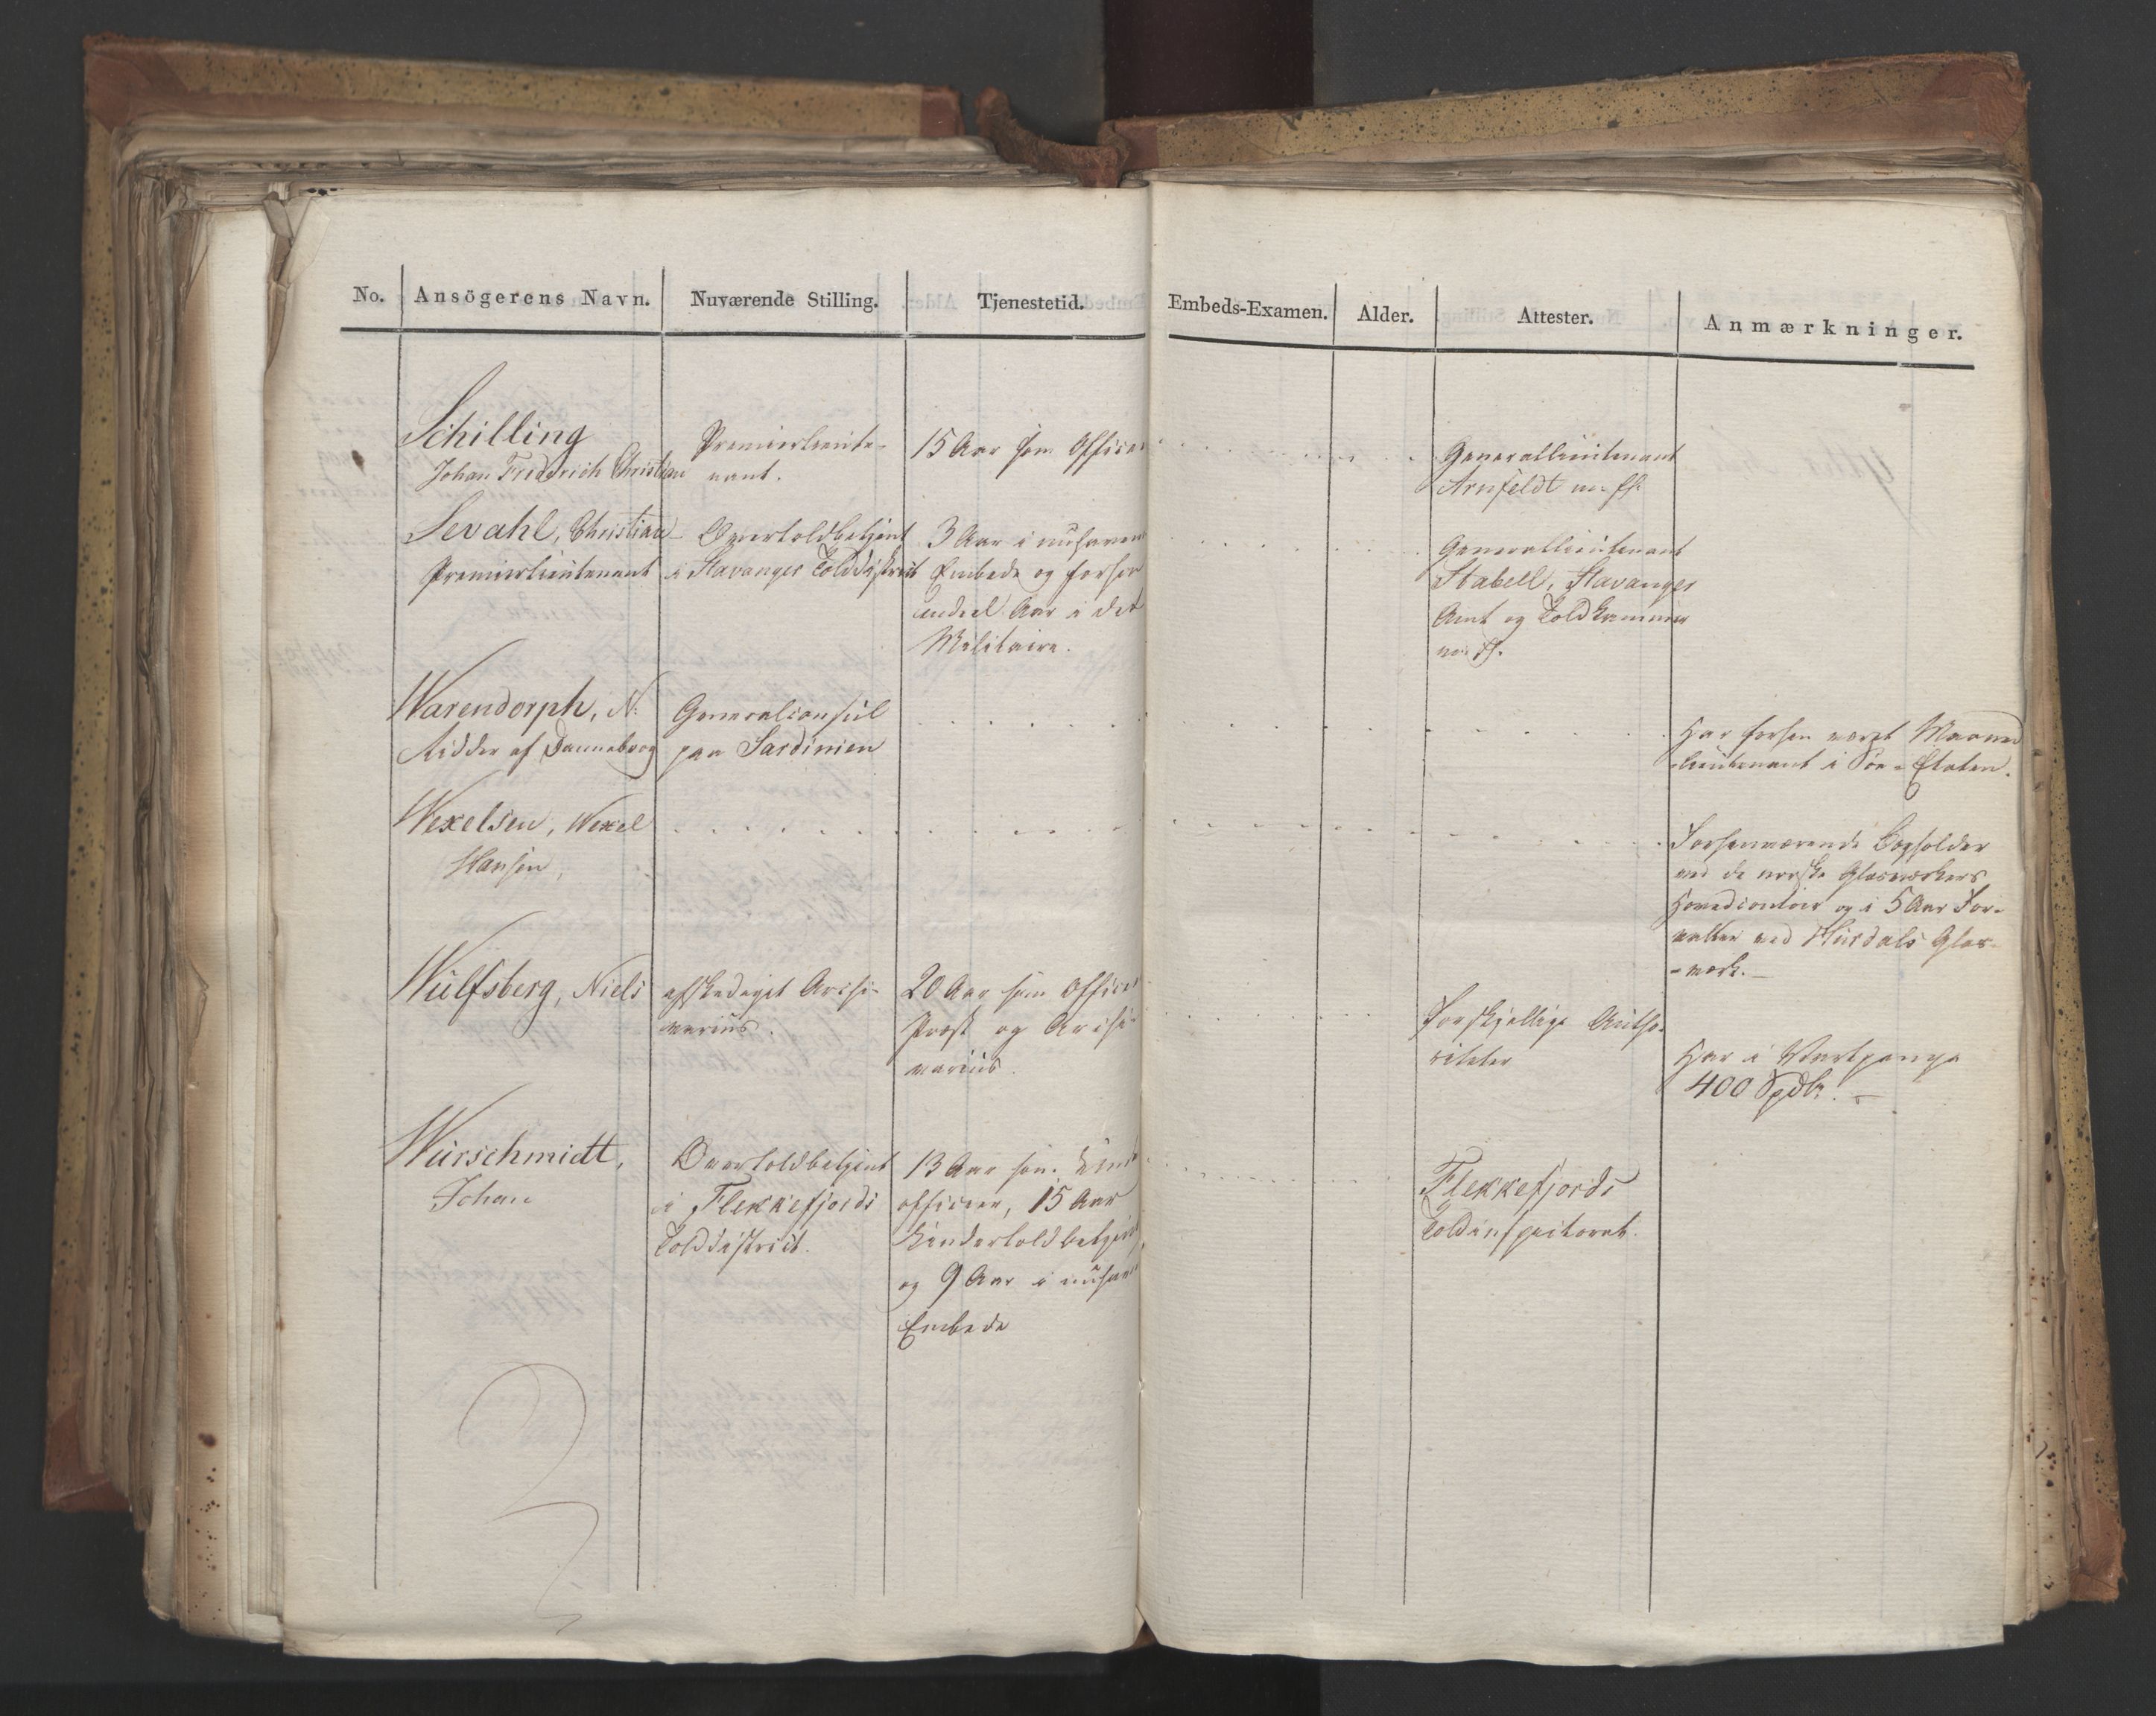 No. Ansögerens Navn. Nuværende Stilling. Tjenestetid. Embeds-Examen. Alder. Attester. Anmærkninger.
Schilling
Johan Frederich Christian
Premierlieute-
nant.
15 Aar som Officer
Generallieutenant
Arnfeldt m: fl:
Sevahl, Christian
Premierlieutenant
Overtoldbetjent
i Stavanger Tolddistrict
3 Aar i nuhavende
Embede og forhen
endeel Aar i det
Militaire.
Generallieutenant
Stabell, Stavanger
Amt og Toldkammer
m: fl.
Warendorph, N:
Ridder af Dannebrog
Generalconsul
paa Sardinien
Har forhen været Maaned
-lieutenant i Søe-Etaten.
Wexelsen, Wexel
Hansen,
Forhenværende Bogholder
ved de norske Glasværkers
Hovedcontoir og i 5 Aar For-
valter ved Hurdals Glas-
-værk.-
Wulfsberg, Niels
afskediget Archi-
varius.
20 Aar som Officer
Provst og Archi-
varius.
Forskjellige Autho-
riteter
Har i Vartpenge
400 Spdlr. -
Würschmidt,
Johan
Overtoldbetjent
i Flekkefjords
Tolddistrict.
13 Aar som Under
officeer, 15 Aar
Undertoldbetjent,
og 9 Aar i nuhav
Embede
Flekkefjords
Toldinspectorat.